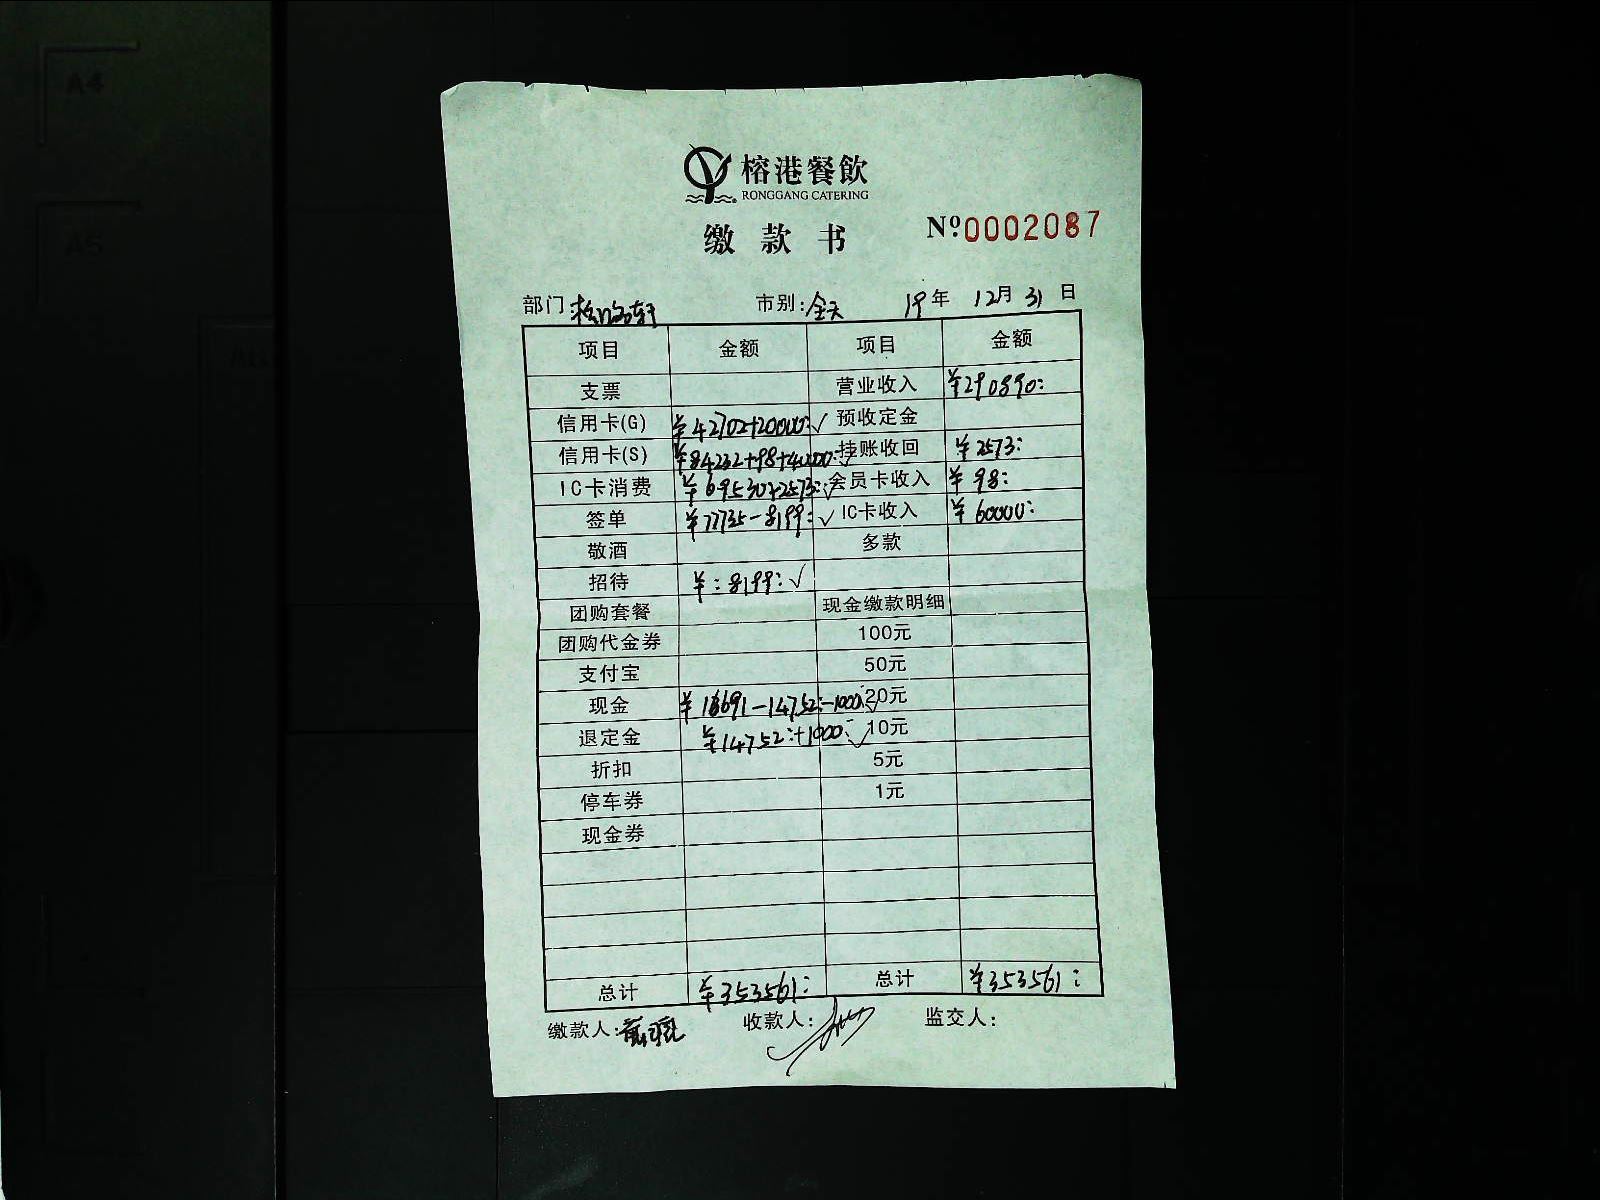 榕港餐飲
RONGGANG CATERING
缴款书 Nº0002087
部门: 市别:全天 19年 12月 31日
项目 金额 项目 金额
支票 营业收入 ¥290890:
信用卡(G) ¥42702+20000:√ 预收定金
信用卡(S) ¥84232+98+40000:√ 挂账收回 ¥2573:
IC卡消费 ¥69530+2573:√ 会员卡收入 ¥98:
签单 ¥77735-8199:√ IC卡收入 ¥60000:
敬酒 多款
招待 ¥:8199:√
团购套餐 现金缴款明细
团购代金券 100元
支付宝 50元
现金 ¥16691-14752:-1000:√ 20元
退定金 ¥14752:+1000:√ 10元
折扣 5元
停车券 1元
现金券
总计 ¥353561: 总计 ¥353561:
缴款人: 收款人: 监交人:
A4
A5